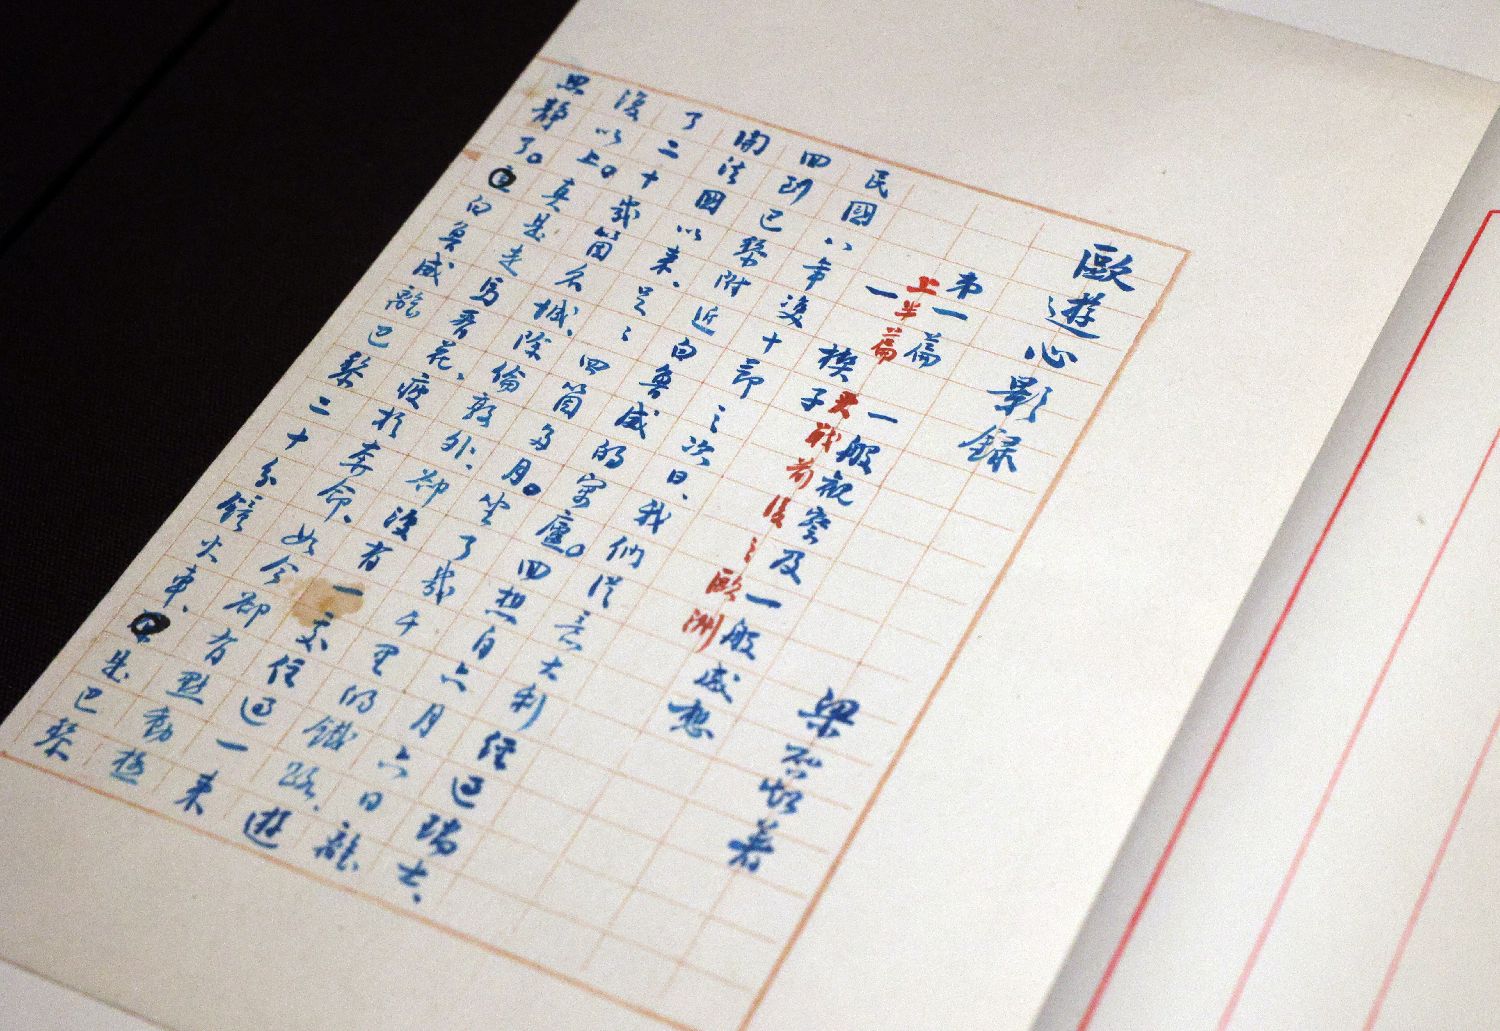 歐遊心影錄
梁啟超著
第一篇 一般觀察及一般感想
上半篇 大戰前後之歐洲
一 楔子
民國八年雙十節之次日、我們從意大利經過瑞士、
回到巴黎附近白魯威的寓廬。回想自六月六日離
開法國以來、足〻四箇多月。坐了幾千里的鐵路、遊
了二十幾箇名城、除倫敦外、却沒有一處住過一來
復以上。真是走馬看花、疲於奔命、如今却有點動極
思靜了。白魯威離巴黎二十分鐘火車、是巴黎